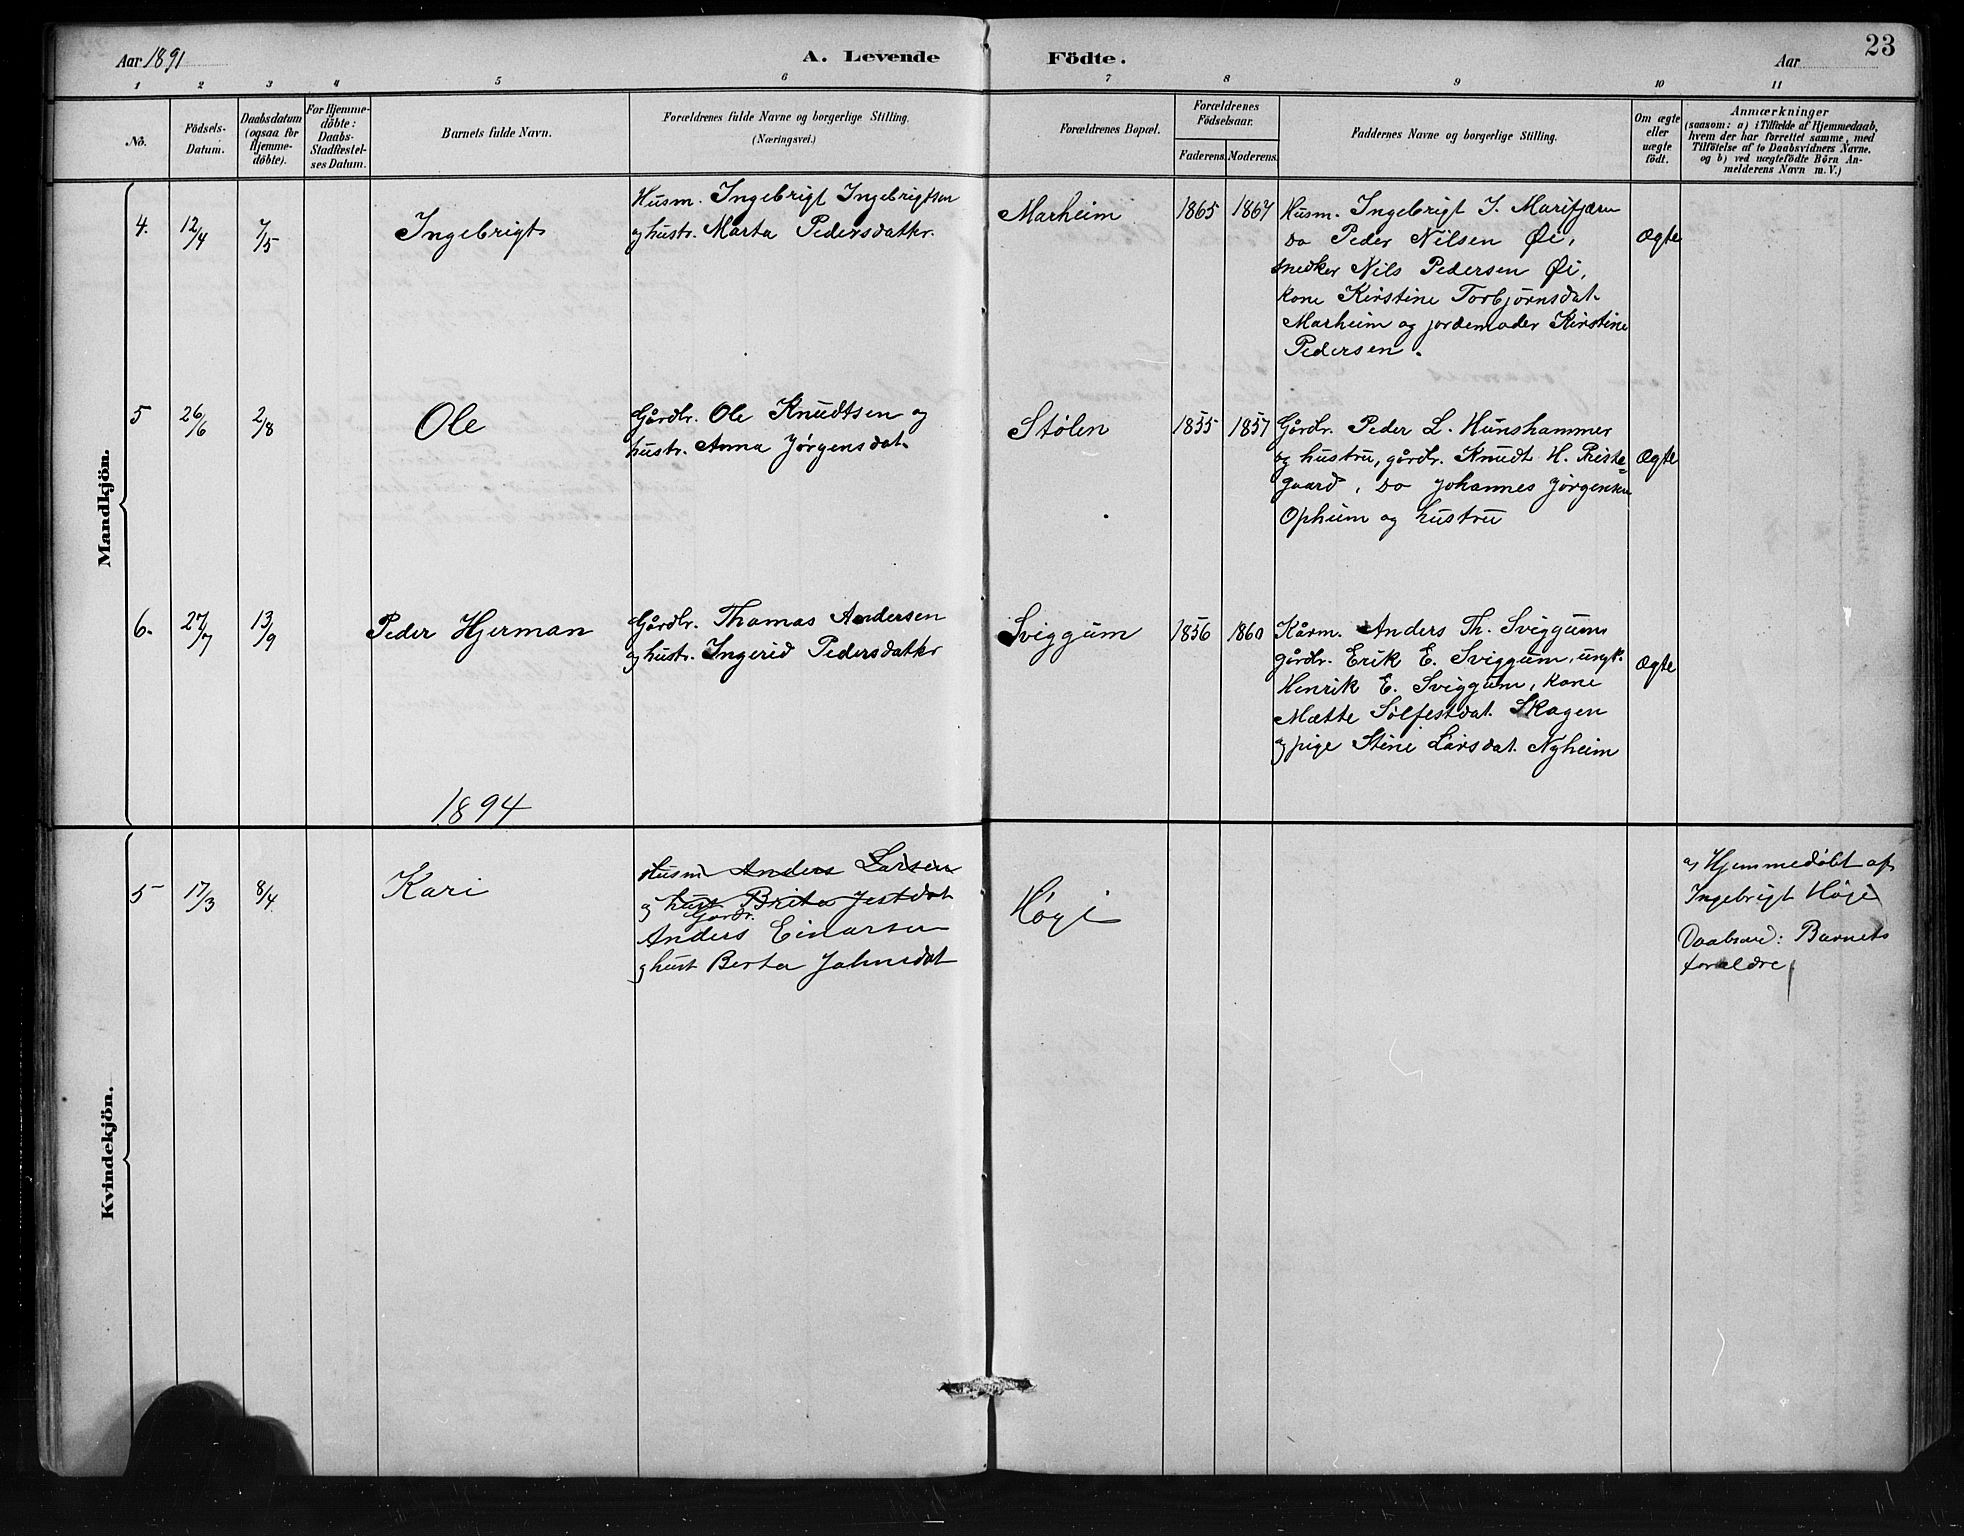 Aar 1891
A. Levende Födte.
Aar
23
1 2 3 4 5 6 7 8 9 10 11
No.
Födsels-
Datum.
Daabsdatum
(ogsaa for
Hjemme-
döbte).
For Hjemme-
döbte:
Daabs-
Stadfæstel-
ses Datum.
Barnets fulde Navn.
Forældrenes fulde Navne og borgerlige Stilling.
(Næringsvei.)
Forældrenes Bopæl.
Forældrenes
Födselsaar.
Faderens. Moderens.
Faddernes Navne og borgerlige Stilling.
Om ægte
eller
uægte
födt.
Anmærkninger
(saasom: a) i Tilfælde af Hjemmedaab,
hvem der har forrettet samme, med
Tilföielse af to Daabsvidners Navne.
og b) ved uægtefödte Börn An-
melderens Navn m. V.)
Mandkjön.
4.
12/4
7/5
Ingebrigt
Husm. Ingebrigt Ingebrigtsen
og hustr. Marta Pedersdatter.
Marheim
1865
1867
Husm. Ingebrigt J. Marifjæren
Do Peder Nilsen Øi,
snedker Nils Pedersen Øi,
kone Kirstine Torbjørnsdat.
Marheim og jordemoder Kirstine
Pedersen.
Ægte
5
26/6
2/8
Ole
Gårdbr. Ole Knudtsen og
hustr. Anna Jørgensdat.
Stølen
1855
1857
Gårdbr. Peder L. Hunshammer
og hustru, gårdbr. Knudt H. Preste=
gaard, Do Johannes Jørgensen
Opheim og hustru
Ægte
6.
27/7
13/9
Peder Hjerman
Gårdbr. Thomas Andersen
og hustr. Ingerid Pedersdatter
Sviggum
1856
1860
Kårm. Anders Th. Sviggum
gårdbr. Erik E. Sviggum, ungk.
Henrik E. Sviggum, kone
Mætte Sølfestdat. Skagen
og pige Stine Larsdat. Nyheim
Ægte
1894
Kvindekjön.
5
17/3
8/4
Kari
Husm Anders Larsen
og hust Brita Jestdat
Gardr.
Anders Einarsen
og hust Berta Johnsdat
Høgi
a) Hjemmedøbt af
Ingebrigt Høgi
Daabsvid: Barnets
forældre